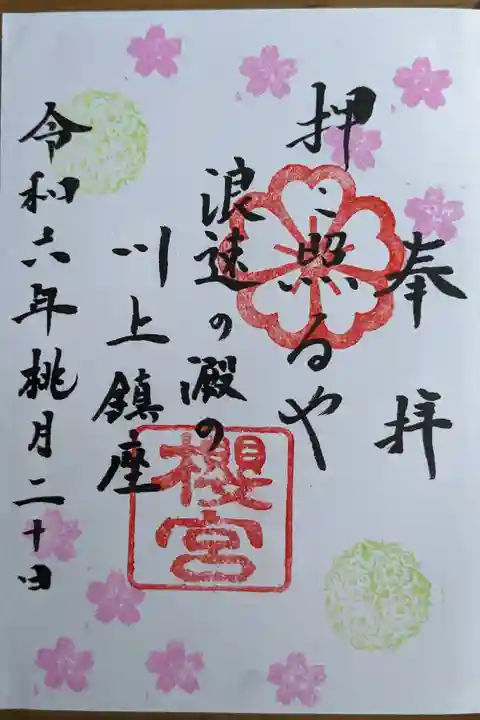 奉拝
押に照るや
浪速の澱の
川上鎮座
櫻宮
令和六年桃月二十日